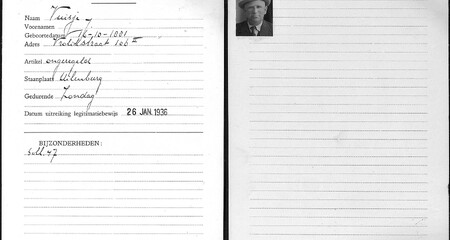 Naam Vuisje
Voornamen
Geboortedatum
Adres
Artikel ongeregeld
Staanplaats Uilenburg
Gedurende Zondag
Datum uitreiking legitimatiebewijs 26 JAN. 1936
BIJZONDERHEDEN: